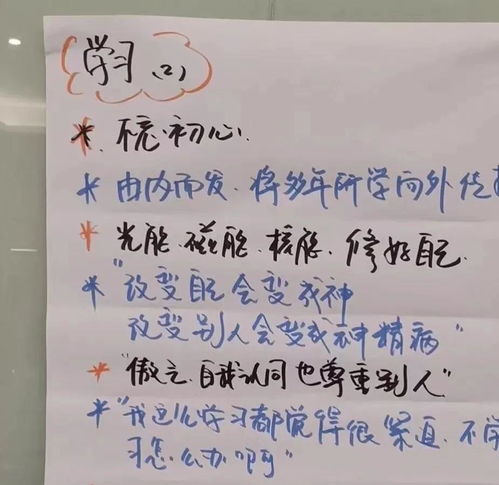 学习(2)
* 不忘初心.
* 由内而发. 将多年所学向外传
* 光能. 磁能. 核能. 修好自己.
* "改变自己会变成神
改变别人会变成神精病"
* "傲立. 自我认同也尊重别人"
* "我这么学习都觉得很紧迫. 不学
习怎么办啊"